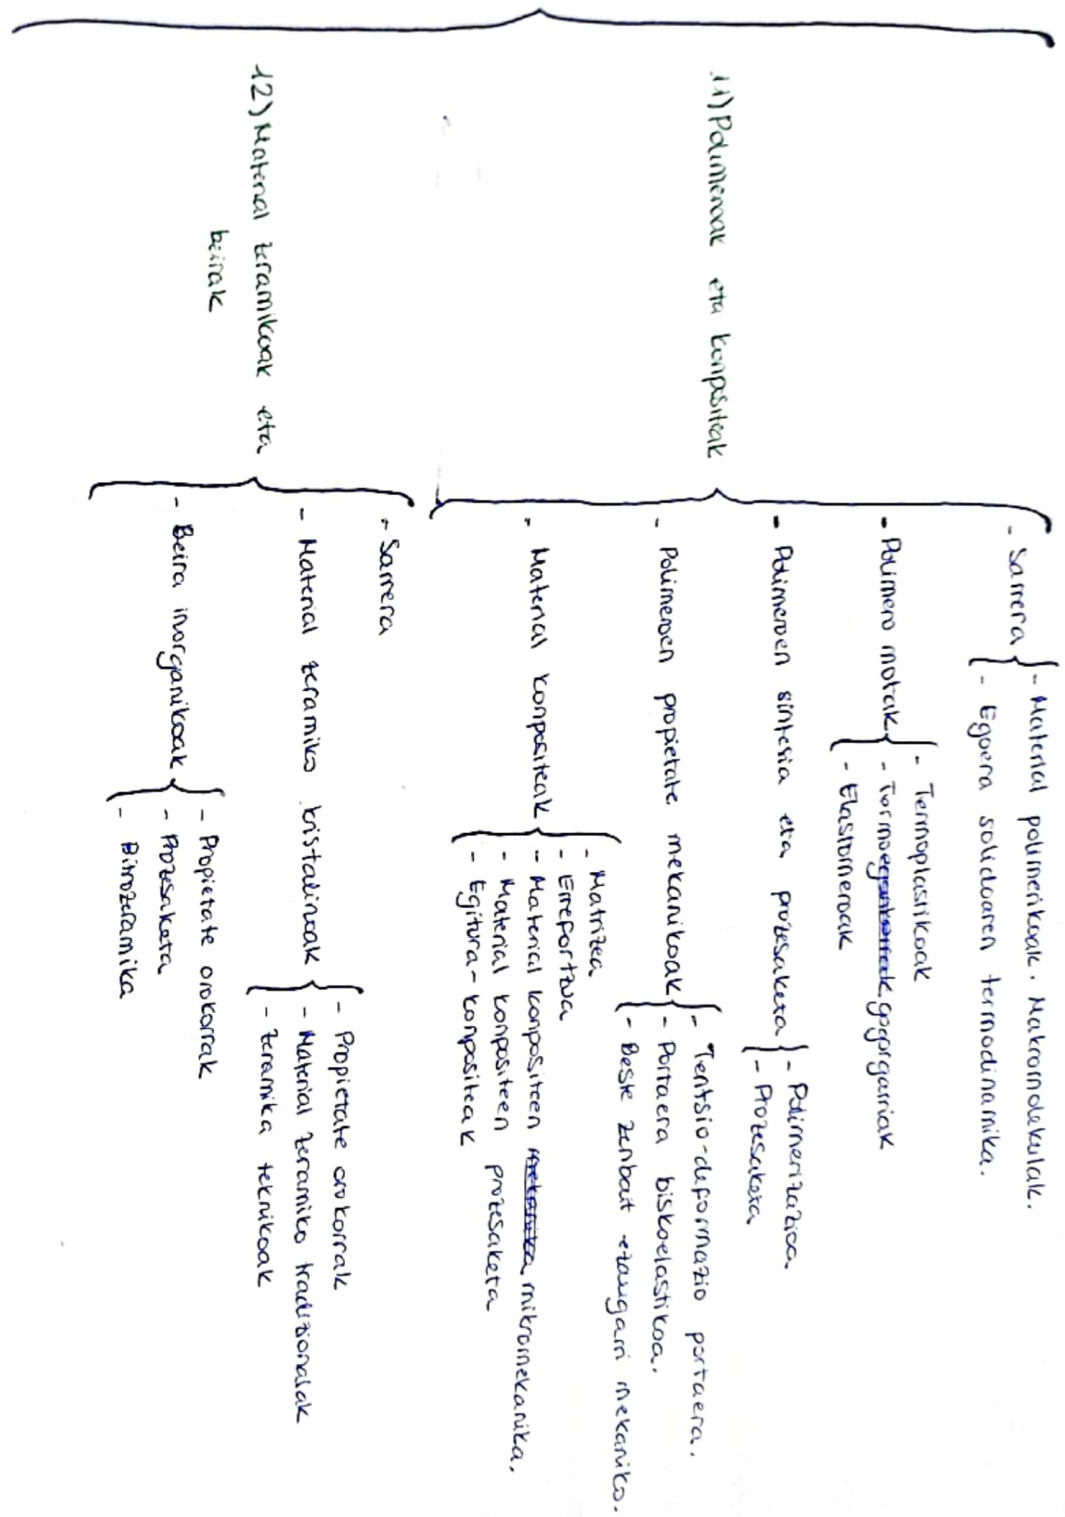 11) Polimeroak eta konpositeak
- Sarrera
- Material polimerikoak. Makromolekulak.
- Egoera solidoaren termodinamika.
- Polimero motak
- Termoplastikoak
- Termoegonkorrak gogorgarriak
- Elastomeroak
- Polimeroen sintesia eta prozesaketa
- Polimerizazioa
- Prozesaketa
- Polimeroen propietate mekanikoak
- Tentsio-deformazio portaera.
- Portaera biskoelastikoa.
- Beste zenbait ezaugarri mekaniko.
- Material konpositeak
- Matrizea
- Errefortzua
- Material konpositeen mikromekanika.
- Material konpositeen prozesaketa
- Egitura-konpositeak
12) Material zeramikoak eta
beirak
- Sarrera
- Material zeramiko kristalinoak
- Propietate orokorrak
- Material zeramiko tradizionalak
- Zeramika teknikoak
- Beira inorganikoak
- Propietate orokorrak
- Prozesaketa
- Bitrozeramika